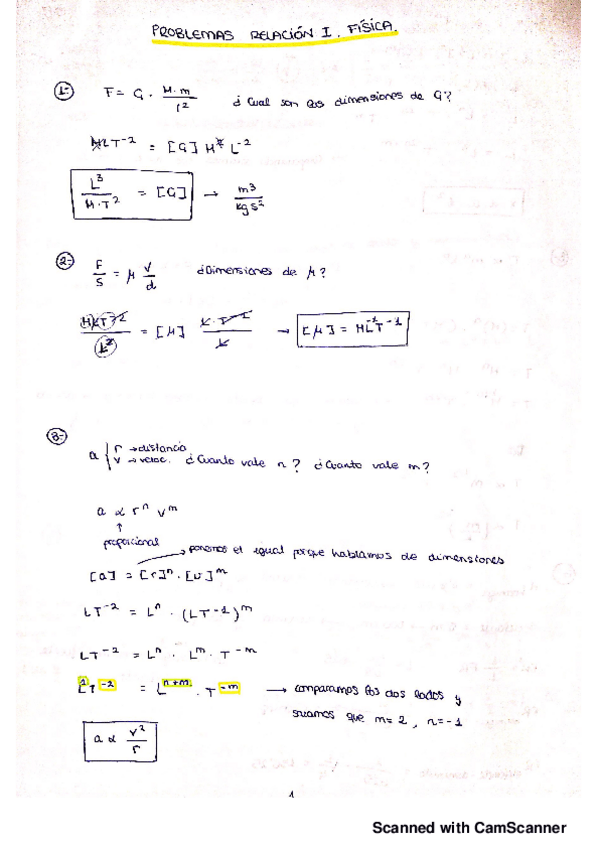 PROBLEMAS RELACIÓN I. FÍSICA.
1- F = G · M·m / r² ¿Cual son las dimensiones de G?
MLT⁻² = [G] M² L⁻²
L³ / M·T² = [G] → m³ / kg s²
2- F/S = μ v/d ¿Dimensiones de μ?
MLT⁻² / L² = [μ] L·T⁻¹ / L → [μ] = ML⁻¹T⁻¹
3- a { r → distancia
v → veloc. ¿Cuanto vale n? ¿Cuanto vale m?
a ∝ rⁿ vᵐ
↑
proporcional
→ ponemos el igual porque hablamos de dimensiones
[a] = [r]ⁿ · [v]ᵐ
LT⁻² = Lⁿ · (LT⁻¹)ᵐ
LT⁻² = Lⁿ · Lᵐ · T⁻ᵐ
L¹T⁻² = Lⁿ⁺ᵐ · T⁻ᵐ → comparamos los dos lados y
que m = 2, n = -1
a ∝ v²/r
1
Scanned with CamScanner